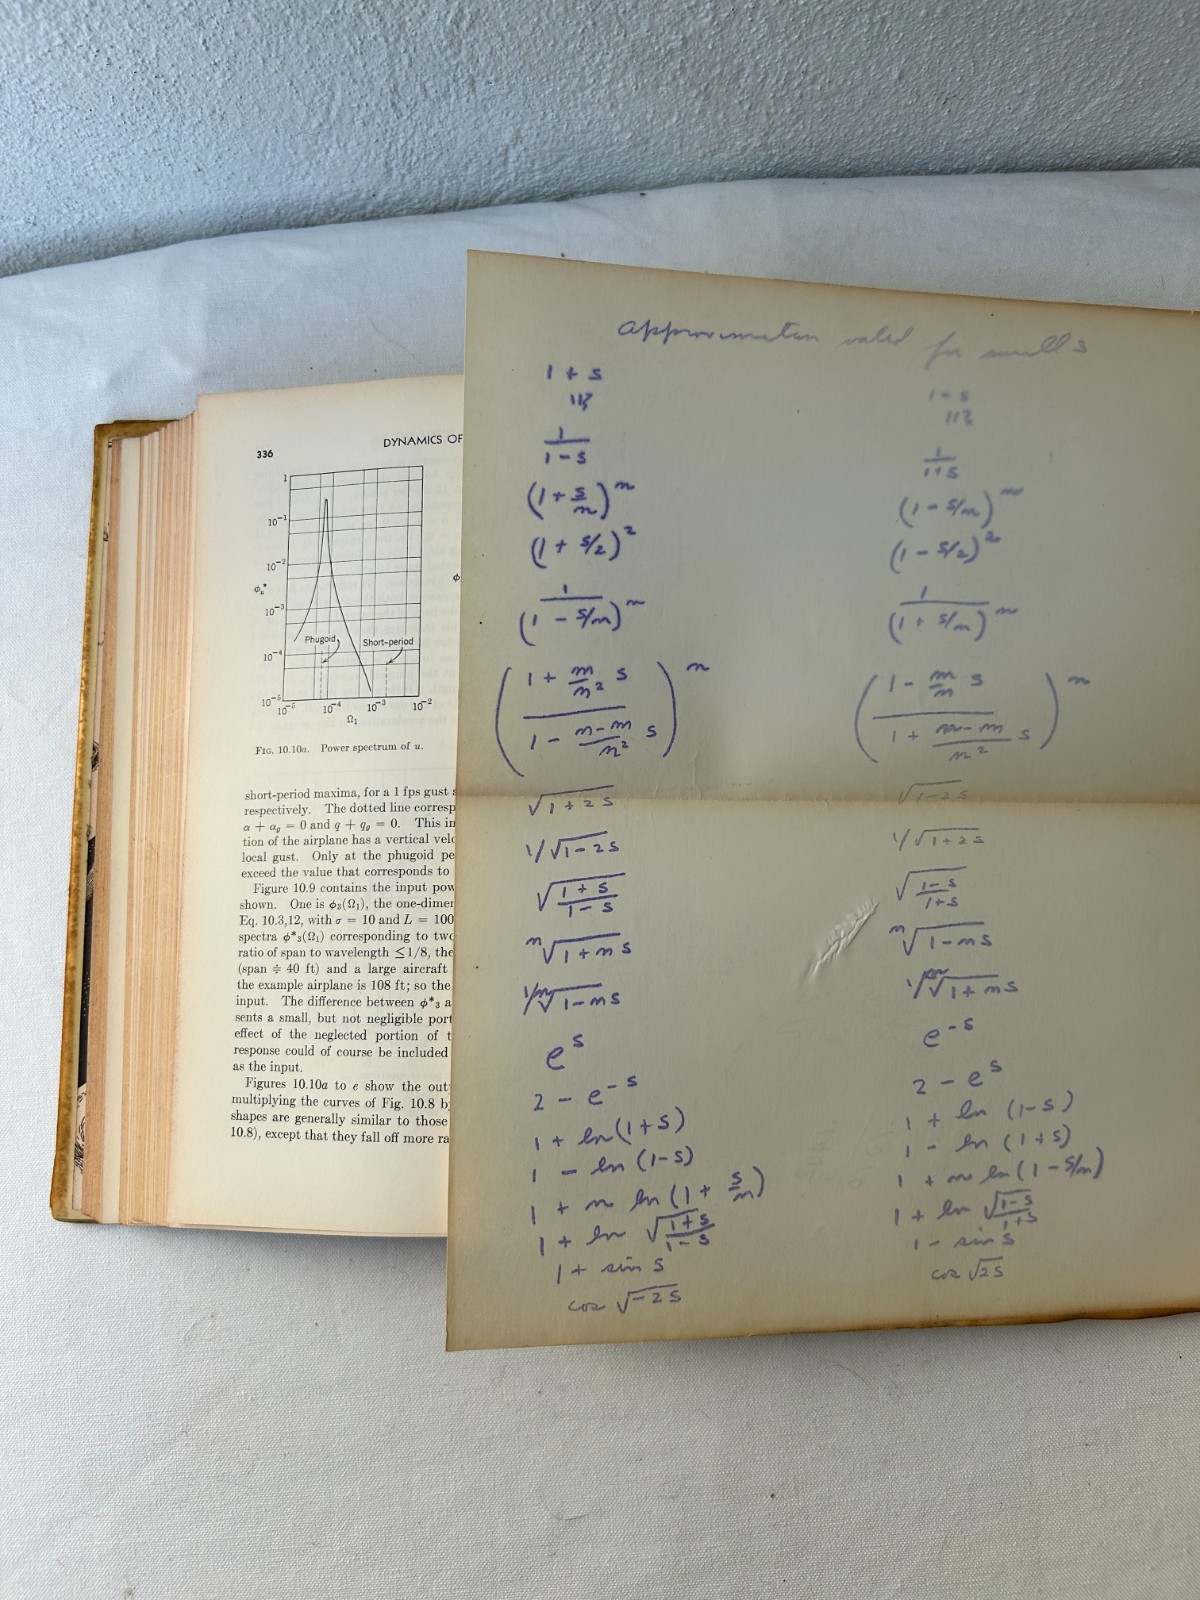 336
DYNAMICS OF
1
10⁻¹
10⁻²
10⁻³
10⁻⁴
10⁻⁵
Phugoid
Short-period
10⁻⁵ 10⁻⁴ 10⁻³ 10⁻²
Ω₁
FIG. 10.10a. Power spectrum of u.
short-period maxima, for a 1 fps gust
respectively. The dotted line corresp
α + α_g = 0 and q + q_g = 0. This in
tion of the airplane has a vertical velo
local gust. Only at the phugoid pe
exceed the value that corresponds to
Figure 10.9 contains the input pow
shown. One is ϕ₃(Ω₁), the one-dimen
Eq. 10.3,12, with σ = 10 and L = 100
spectra ϕ*₃(Ω₁) corresponding to two
ratio of span to wavelength ≤1/8, the
(span ≑ 40 ft) and a large aircraft
the example airplane is 108 ft; so the
input. The difference between ϕ*₃ a
sents a small, but not negligible port
effect of the neglected portion of t
response could of course be included
as the input.
Figures 10.10a to e show the out
multiplying the curves of Fig. 10.8 b
shapes are generally similar to those
10.8), except that they fall off more ra
approximation valid for small s
1 + s
≅
1/(1-s)
(1 + s/n)ⁿ
(1 + s/2)²
1/(1 - s/n)ⁿ
((1 + m/n² s)/(1 - (n-m)/n² s))ⁿ
√(1+2s)
1/√(1-2s)
√((1+s)/(1-s))
ⁿ√(1+ns)
1/ⁿ√(1-ns)
eˢ
2 - e⁻ˢ
1 + ln(1+s)
1 - ln (1-s)
1 + n ln (1 + s/n)
1 + ln √((1+s)/(1-s))
1 + sin s
cos √(-2s)
1 - s
≅
1/(1+s)
(1 - s/n)ⁿ
(1 - s/2)²
1/(1 + s/n)ⁿ
((1 - m/n s)/(1 + (n-m)/n² s))ⁿ
√(1-2s)
1/√(1+2s)
√((1-s)/(1+s))
ⁿ√(1-ns)
1/ⁿ√(1+ns)
e⁻ˢ
2 - eˢ
1 + ln (1-s)
1 - ln (1+s)
1 + n ln (1 - s/n)
1 + ln √((1-s)/(1+s))
1 - sin s
cos √(2s)